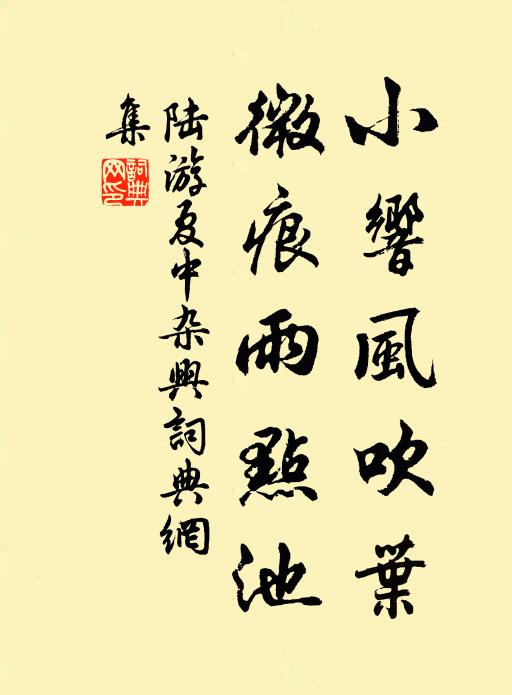 小響風吹葉
微痕雨點池
陆游夏中杂興詞典網
集
詞典網印